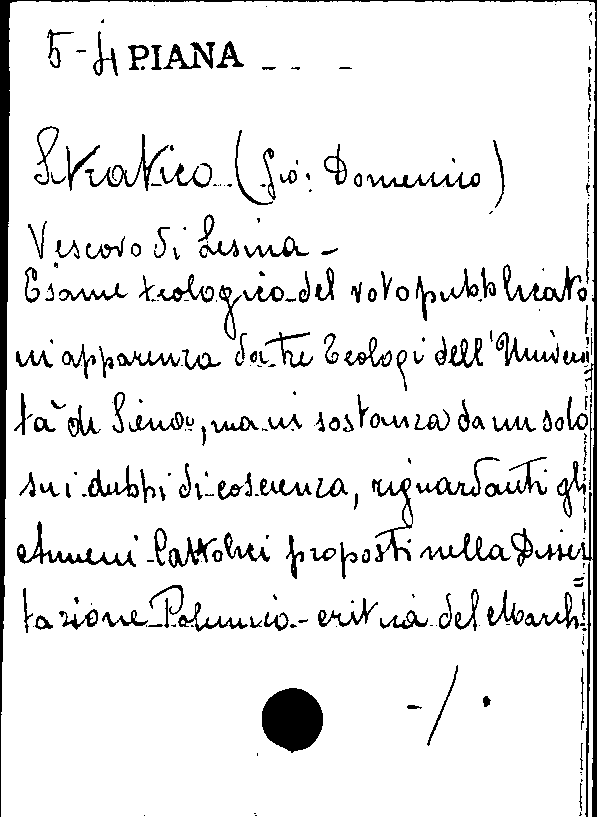 5-4 PIANA
Stratico (Gio: Domenico)
Vescovo di Lesina -
Esame teologico del voto pubblicato
in apparenza da tre Teologi dell'Universi
tà di Siena, ma in sostanza da un solo
sui dubbi di coscienza, riguardanti gli
Armeni Cattolici proposti nella Disser
tazione Polemico-critica del March:
-/.